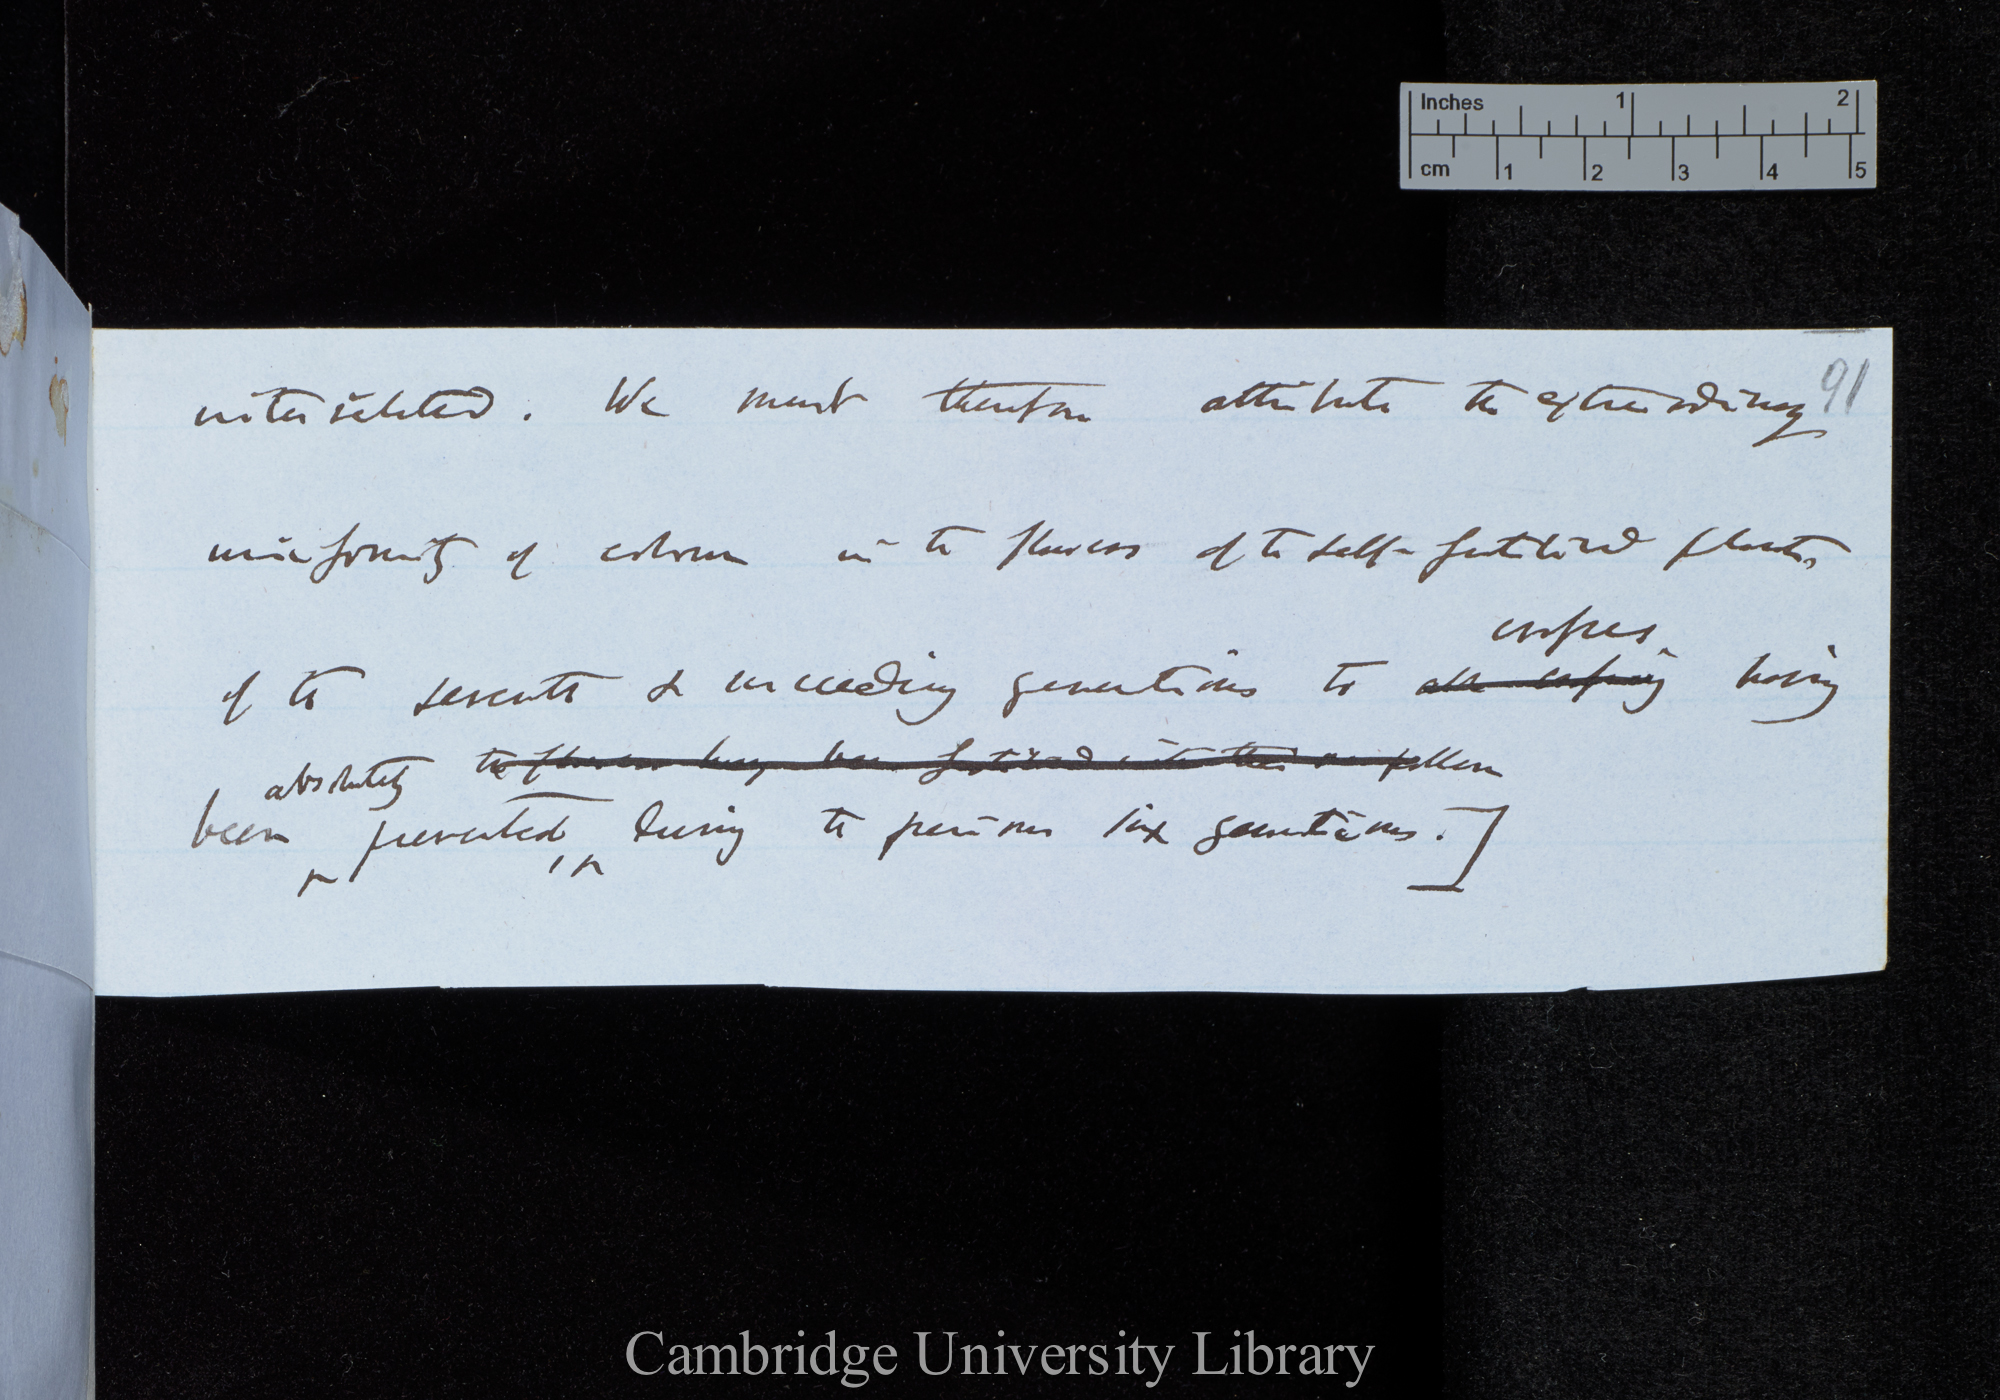 Inches 1 2
cm 1 2 3 4 5
91
inter related. We must therefore attribute the extraordinary
uniformity of colour in the flowers of the self-fertilised plants,
crosses
of the seventh & succeeding generations to all crossing having
absolutely the flowers having been fertilised with their own pollen
been prevented, during the previous six generations.]
Cambridge University Library